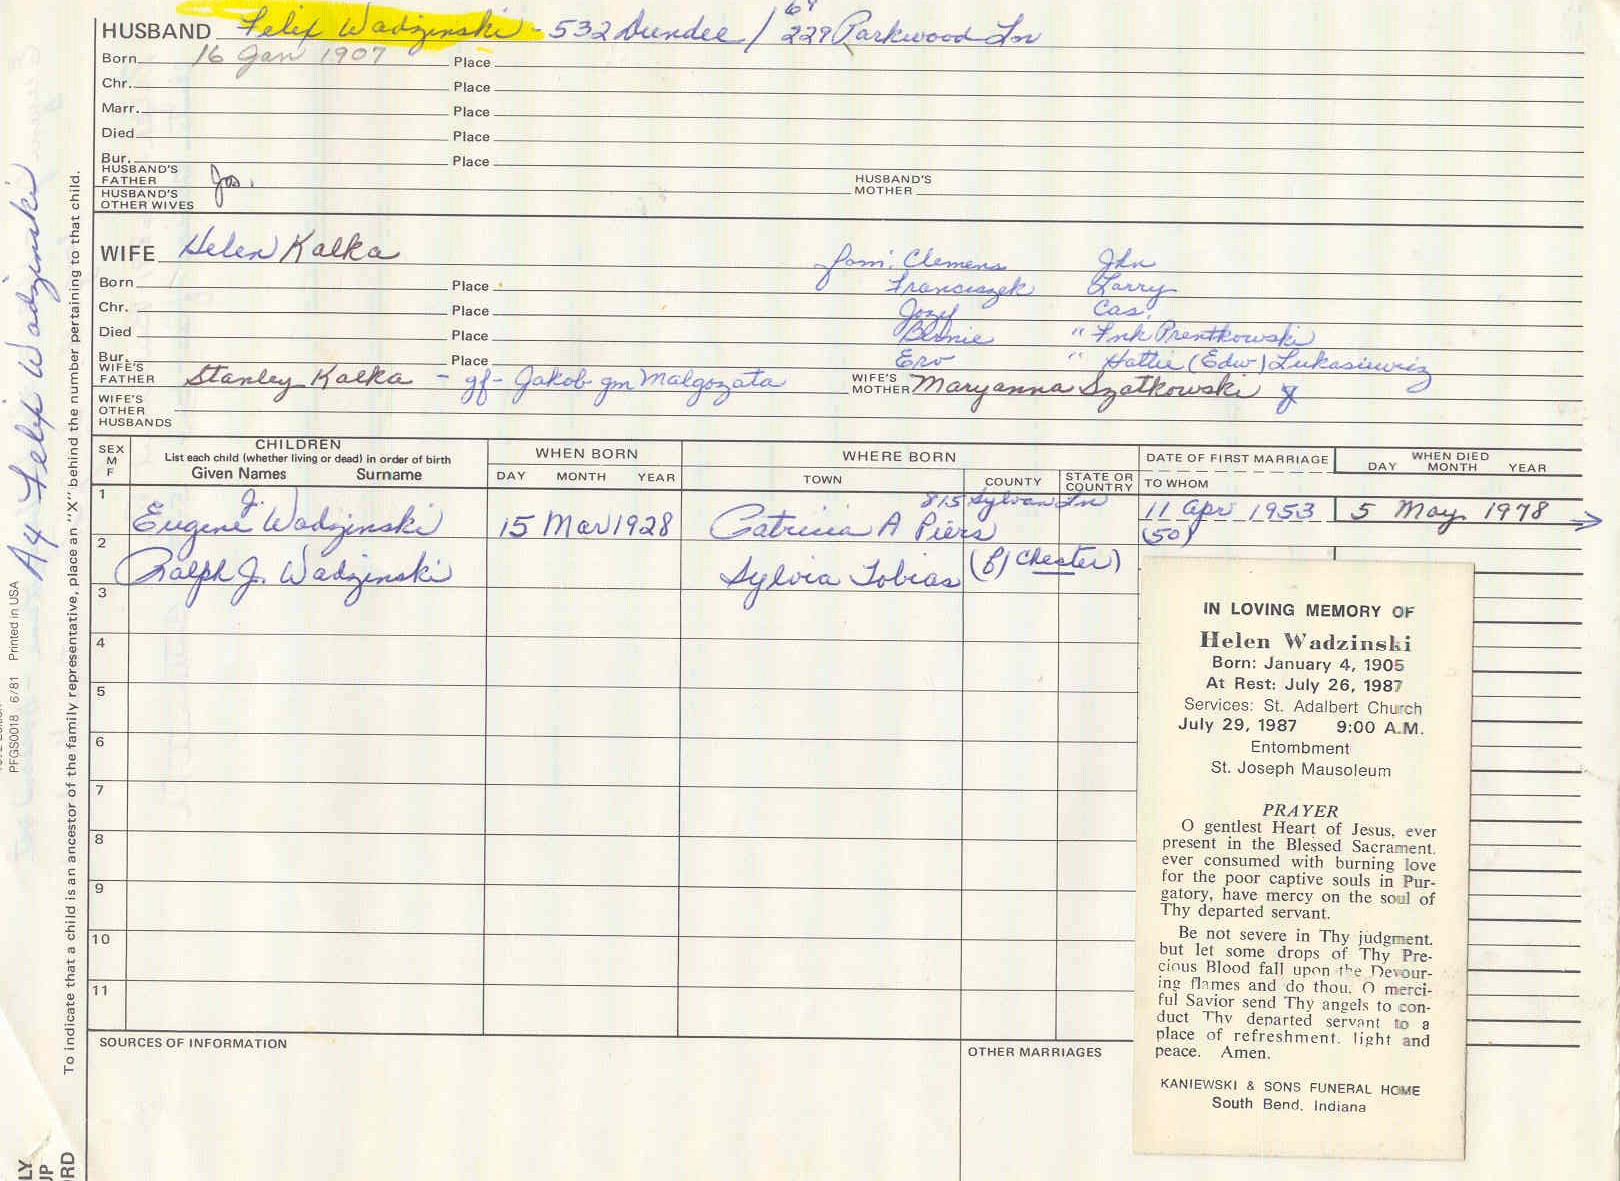 64
HUSBAND Felix Wadzinski - 532 Dundee / 229 Parkwood Ln
Born 16 Jan 1907 Place
Chr. Place
Marr. Place
Died Place
Bur. Place
HUSBAND'S FATHER Jos. HUSBAND'S MOTHER
HUSBAND'S OTHER WIVES
WIFE Helen Kalka
fam: Clemens John
Born Place Franciszek Larry
Chr. Place Jozef Cas.
Died Place Bernie " Fnk Prentkowski
Bur. Place Erv " Hattie (Edw) Lukasiewiz
WIFE'S FATHER Stanley Kalka - gf - Jakob gm Malgozata WIFE'S MOTHER Maryanna Szatkowski
WIFE'S OTHER HUSBANDS
SEX M F
CHILDREN
List each child (whether living or dead) in order of birth
Given Names Surname
WHEN BORN
DAY MONTH YEAR
WHERE BORN
TOWN COUNTY STATE OR COUNTRY
DATE OF FIRST MARRIAGE
TO WHOM
WHEN DIED
DAY MONTH YEAR
1 Eugene J. Wadzinski 15 Mar 1928 Patricia A Piers 815 Sylvan Ln 11 Apr 1953 5 May 1978 →
(50)
2 Ralph J. Wadzinski Sylvia Tobias (f) Chester)
3
4
5
6
7
8
9
10
11
SOURCES OF INFORMATION
OTHER MARRIAGES
IN LOVING MEMORY OF
Helen Wadzinski
Born: January 4, 1905
At Rest: July 26, 1987
Services: St. Adalbert Church
July 29, 1987 9:00 A.M.
Entombment
St. Joseph Mausoleum
PRAYER
O gentlest Heart of Jesus, ever
present in the Blessed Sacrament.
ever consumed with burning love
for the poor captive souls in Pur-
gatory, have mercy on the soul of
Thy departed servant.
Be not severe in Thy judgment.
but let some drops of Thy Pre-
cious Blood fall upon the Devour-
ing flames and do thou. O merci-
ful Savior send Thy angels to con-
duct Thy departed servant to a
place of refreshment. light and
peace. Amen.
KANIEWSKI & SONS FUNERAL HOME
South Bend, Indiana
To indicate that a child is an ancestor of the family representative, place an "X" behind the number pertaining to that child.
A4 Felix Wadzinski
PFGS0018 6/81 Printed in USA